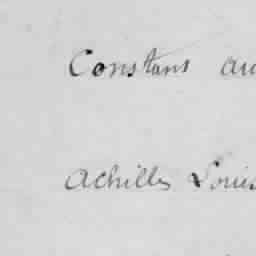 Constant au
Achilles Louis